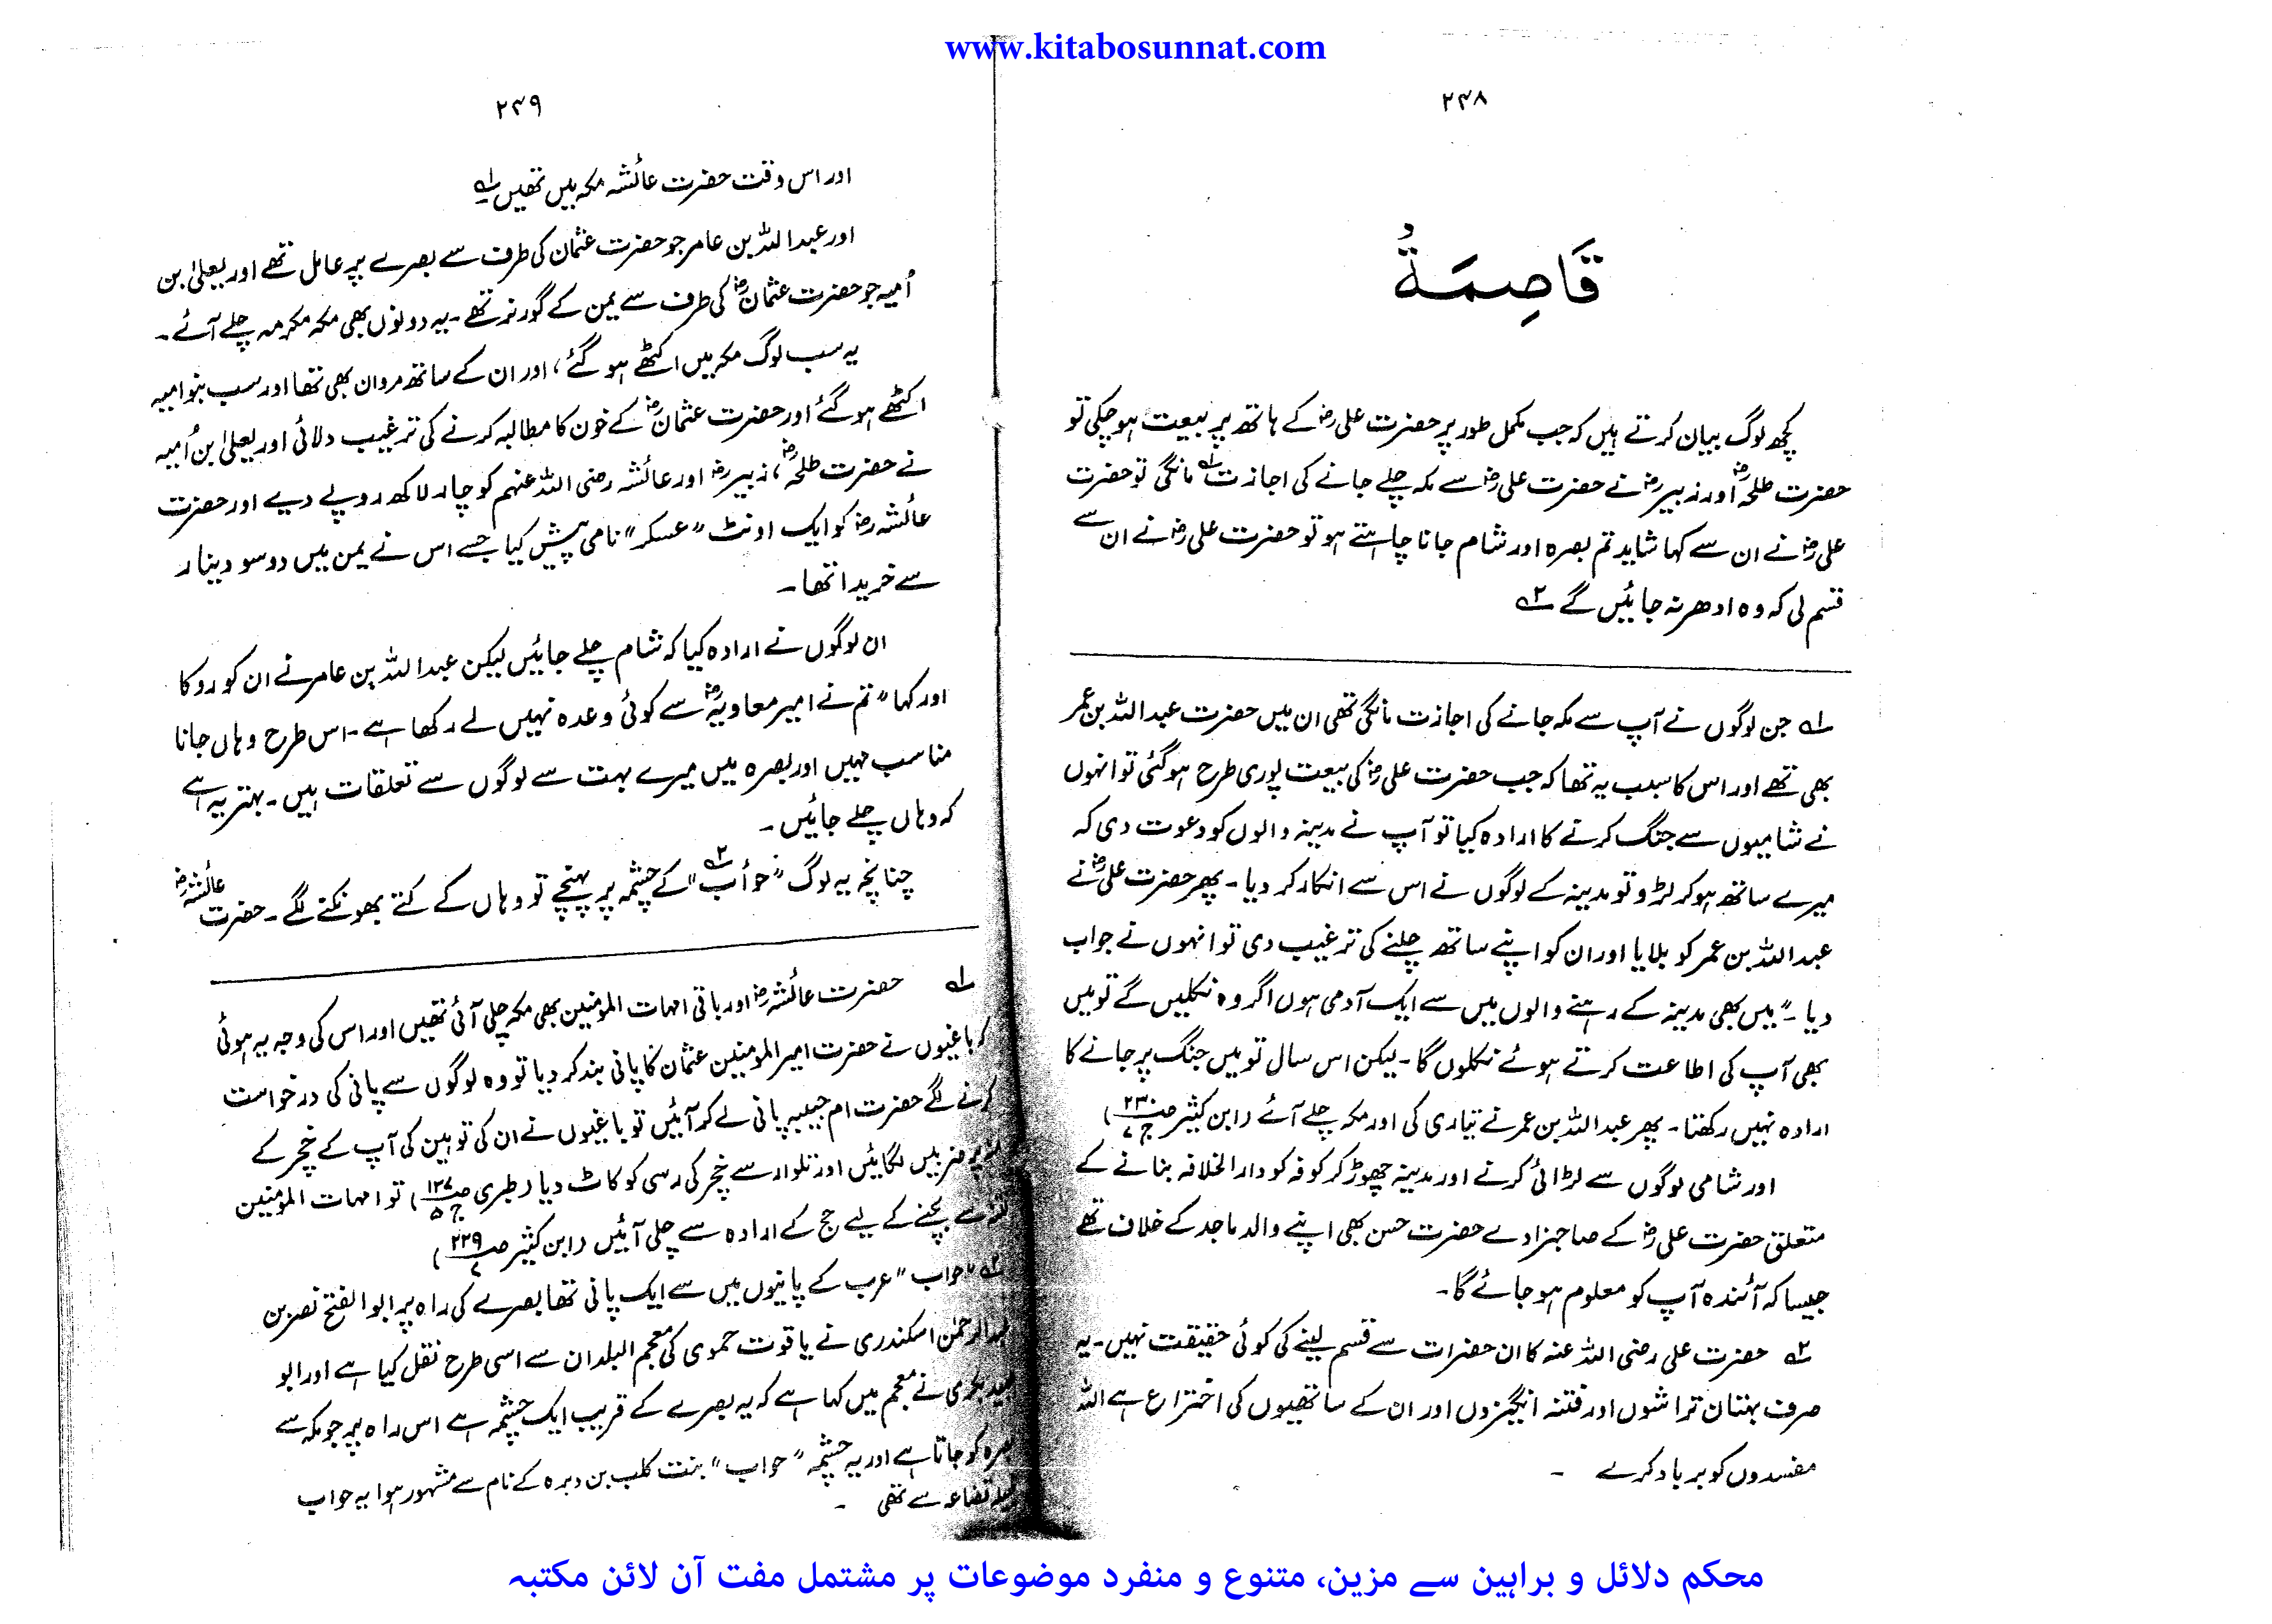 www.kitabosunnat.com
۲۴۸
قَاصِمَةُ
کچھ لوگ بیان کرتے ہیں کہ جب مکمل طور پر حضرت علیؓ کے ہاتھ پر بیعت ہو چکی تو
حضرت طلحہؓ اور زبیرؓ نے حضرت علیؓ سے مکہ چلے جانے کی اجازت ؎۱ مانگی تو حضرت
علیؓ نے ان سے کہا شاید تم بصرہ اور شام جانا چاہتے ہو تو حضرت علیؓ نے ان سے
قسم لی کہ وہ ادھر نہ جائیں گے ؎۲
؎۱ جن لوگوں نے آپ سے مکہ جانے کی اجازت مانگی تھی ان میں حضرت عبداللہ بن عمر
بھی تھے اور اس کا سبب یہ تھا کہ جب حضرت علیؓ کی بیعت پوری طرح ہو گئی تو انہوں
نے شامیوں سے جنگ کرنے کا ارادہ کیا تو آپ نے مدینہ والوں کو دعوت دی کہ
میرے ساتھ ہو کر لڑو تو مدینہ کے لوگوں نے اس سے انکار کر دیا۔ پھر حضرت علیؓ نے
عبداللہ بن عمر کو بلایا اور ان کو اپنے ساتھ چلنے کی ترغیب دی تو انہوں نے جواب
دیا۔ "میں بھی مدینہ کے رہنے والوں میں سے ایک آدمی ہوں اگر وہ نکلیں گے تو میں
بھی آپ کی اطاعت کرتے ہوئے نکلوں گا۔ لیکن اس سال تو میں جنگ پر جانے کا
ارادہ نہیں رکھتا۔ پھر عبداللہ بن عمر نے تیاری کی اور مکہ چلے آئے (ابن کثیر ص۲۳۰ ج۷)
اور شامی لوگوں سے لڑائی کرنے اور مدینہ چھوڑ کر کوفہ کو دارالخلافہ بنانے کے
متعلق حضرت علیؓ کے صاحبزادے حضرت حسن بھی اپنے والد ماجد کے خلاف تھے
جیسا کہ آئندہ آپ کو معلوم ہو جائے گا۔
؎۲ حضرت علی رضی اللہ عنہ کا ان حضرات سے قسم لینے کی کوئی حقیقت نہیں۔ یہ
صرف بہتان تراشوں اور فتنہ انگیزوں اور ان کے ساتھیوں کی اختراع ہے اللہ
مفسدوں کو برباد کرے ۔
۲۴۹
اور اس وقت حضرت عائشہ مکہ میں تھیں ؎۱
اور عبداللہ بن عامر جو حضرت عثمان کی طرف سے بصرے پر عامل تھے اور یعلیٰ بن
اُمیہ جو حضرت عثمانؓ کی طرف سے یمن کے گورنر تھے۔ یہ دونوں بھی مکہ مکرمہ چلے آئے۔
یہ سب لوگ مکہ میں اکٹھے ہو گئے، اور ان کے ساتھ مروان بھی تھا اور سب بنو امیہ
اکٹھے ہو گئے اور حضرت عثمانؓ کے خون کا مطالبہ کرنے کی ترغیب دلائی اور یعلیٰ بن اُمیہ
نے حضرت طلحہؓ، زبیرؓ اور عائشہ رضی اللہ عنہم کو چار لاکھ روپے دیے اور حضرت
عائشہؓ کو ایک اونٹ "عسکر" نامی پیش کیا جسے اس نے یمن میں دو سو دینار
سے خریدا تھا۔
ان لوگوں نے ارادہ کیا کہ شام چلے جائیں لیکن عبداللہ بن عامر نے ان کو روکا
اور کہا "تم نے امیر معاویہؓ سے کوئی وعدہ نہیں لے رکھا ہے۔ اس طرح وہاں جانا
مناسب نہیں اور بصرہ میں میرے بہت سے لوگوں سے تعلقات ہیں۔ بہتر یہ ہے
کہ وہاں چلے جائیں۔
چنانچہ یہ لوگ "حوأب ؎۲" کے چشمہ پر پہنچے تو وہاں کے کتے بھونکنے لگے۔ حضرت عائشہؓ
؎۱ حضرت عائشہؓ اور باقی امہات المؤمنین بھی مکہ چلی آئی تھیں اور اس کی وجہ یہ ہوئی
کہ باغیوں نے حضرت امیر المومنین عثمان کا پانی بند کر دیا تو وہ لوگوں سے پانی کی درخواست
کرنے لگے حضرت ام حبیبہ پانی لے کر آئیں تو باغیوں نے ان کی توہین کی آپ کے خچر کے
منہ پر ضربیں لگائیں اور تلوار سے خچر کی رسی کو کاٹ دیا (طبری ص۱۲۷ ج۵) تو امہات المؤمنین
فتنہ سے بچنے کے لیے حج کے ارادہ سے چلی آئیں (ابن کثیر ص۲۲۹ ۷)
؎۲ "حواب" عرب کے پانیوں میں سے ایک پانی تھا بصرے کی راہ پر ابوالفتح نصر بن
عبدالرحمٰن اسکندری نے یاقوت حموی کی معجم البلدان سے اسی طرح نقل کیا ہے اور ابو
عبید بکری نے معجم میں کہا ہے کہ یہ بصرے کے قریب ایک چشمہ ہے اس راہ پر جو مکہ سے
بصرہ کو جاتا ہے اور یہ چشمہ "حواب" بنت کلب بن وبرہ کے نام سے مشہور ہوا یہ حواب
قضاعہ سے تھی ۔
محکم دلائل و براہین سے مزین، متنوع و منفرد موضوعات پر مشتمل مفت آن لائن مکتبہ